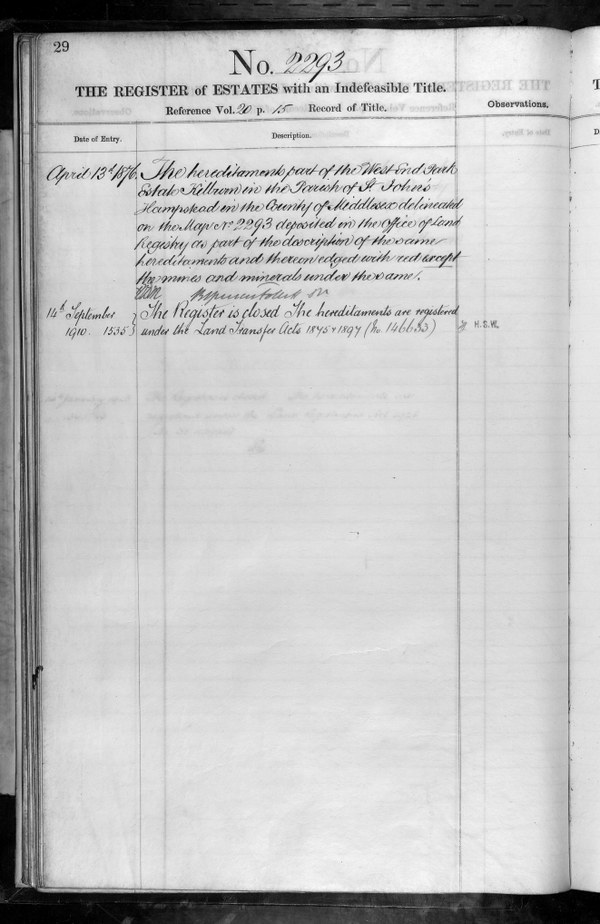 29
No. 2293
THE REGISTER of ESTATES with an Indefeasible Title.
Reference Vol. 20 p. 15 Record of Title.
Observations.
Date of Entry.
Description.
April 13th 1876. The hereditaments part of the West End Park
Estate Kilburn in the Parish of St John's
Hampstead in the County of Middlesex delineated
on the Map No 2293 deposited in the Office of Land
Registry as part of the description of the same
hereditaments and thereon edged with red except
the mines and minerals under the same.
14th September The Register is closed The hereditaments are registered
1910. 1535 under the Land Transfer Acts 1875 & 1897 (No. 146633) H.S.W.